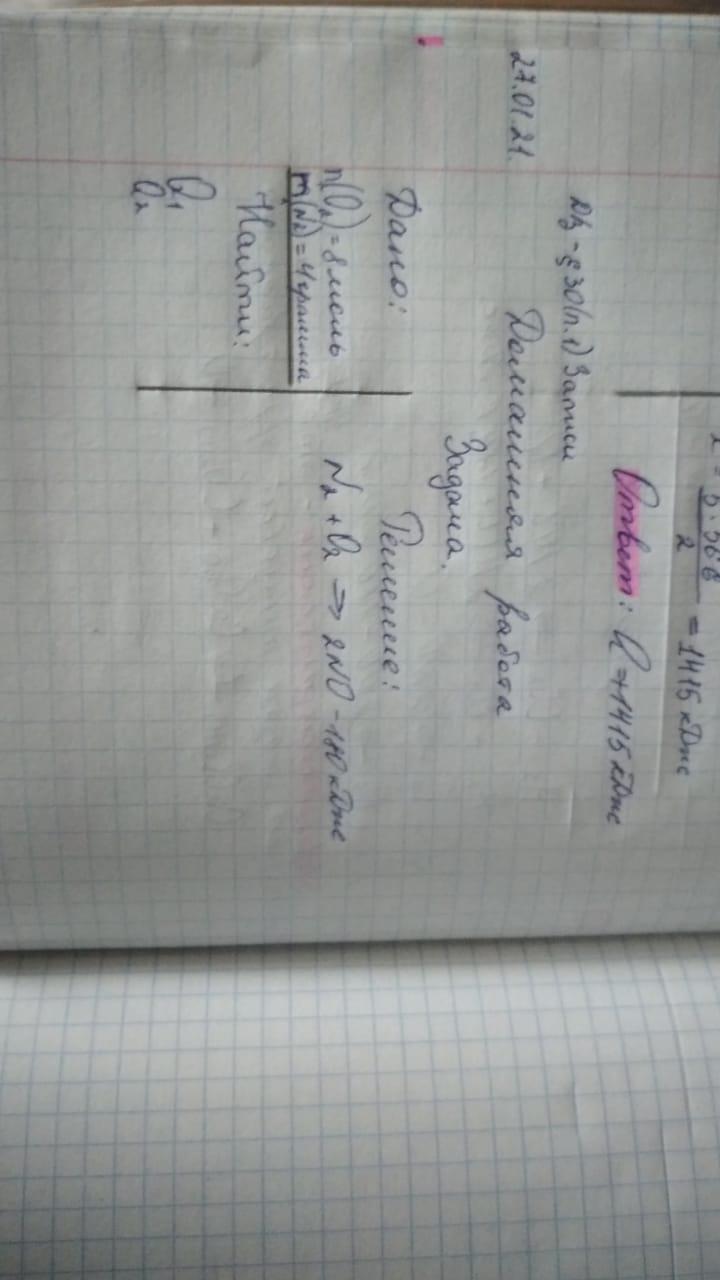 = 1415 кДж
Ответ: Q = +1415 кДж
27.01.21.
Дз - § 30 (п. 1) Записи
Домашняя работа
Задача.
Дано:
n(O₂) = 8 моль
m(N₂) = 4 грамма
Найти:
Q₁
Q₂
Решение:
N₂ + O₂ → 2NO - 180 кДж